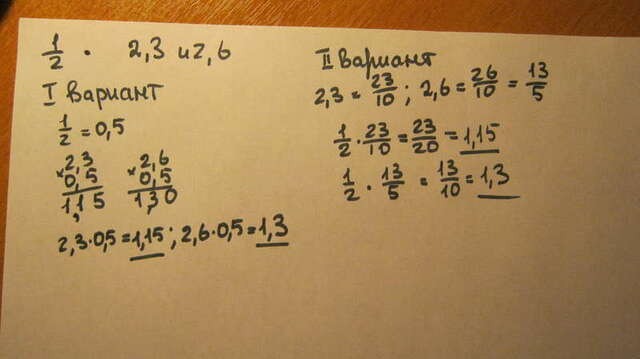 1/2 · 2,3 и 2,6
I Вариант
1/2 = 0,5
×2,3
0,5
1,15
×2,6
0,5
1,30
2,3·0,5=1,15; 2,6·0,5=1,3
II Вариант
2,3 = 23/10; 2,6 = 26/10 = 13/5
1/2 · 23/10 = 23/20 = 1,15
1/2 · 13/5 = 13/10 = 1,3